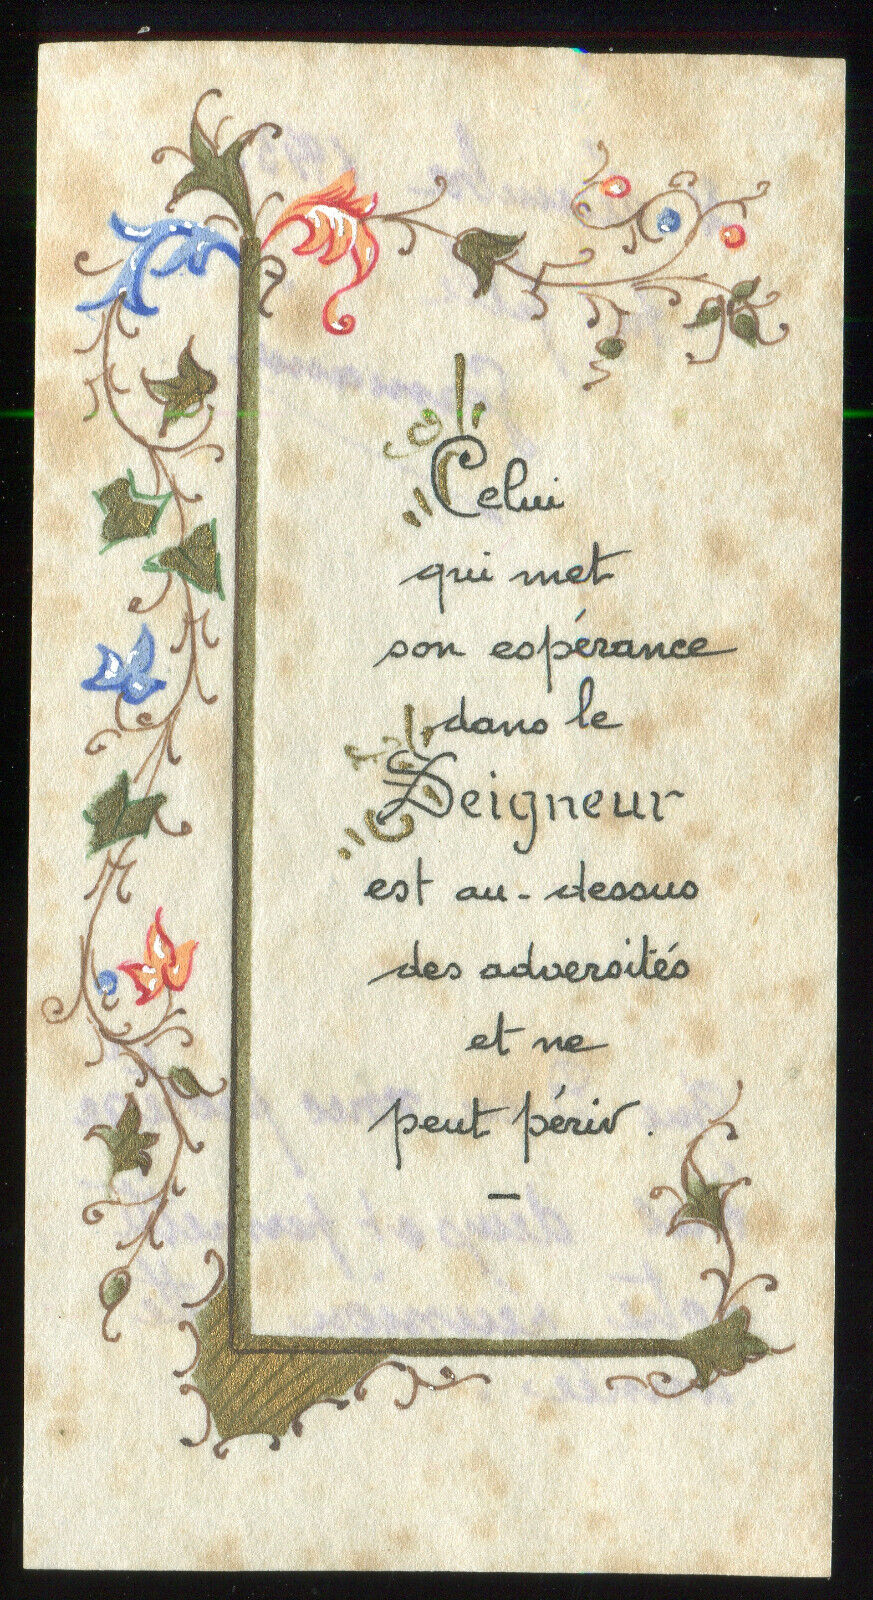 Celui
qui met
son espérance
dans le
Seigneur
est au-dessus
des adversités
et ne
peut périr.